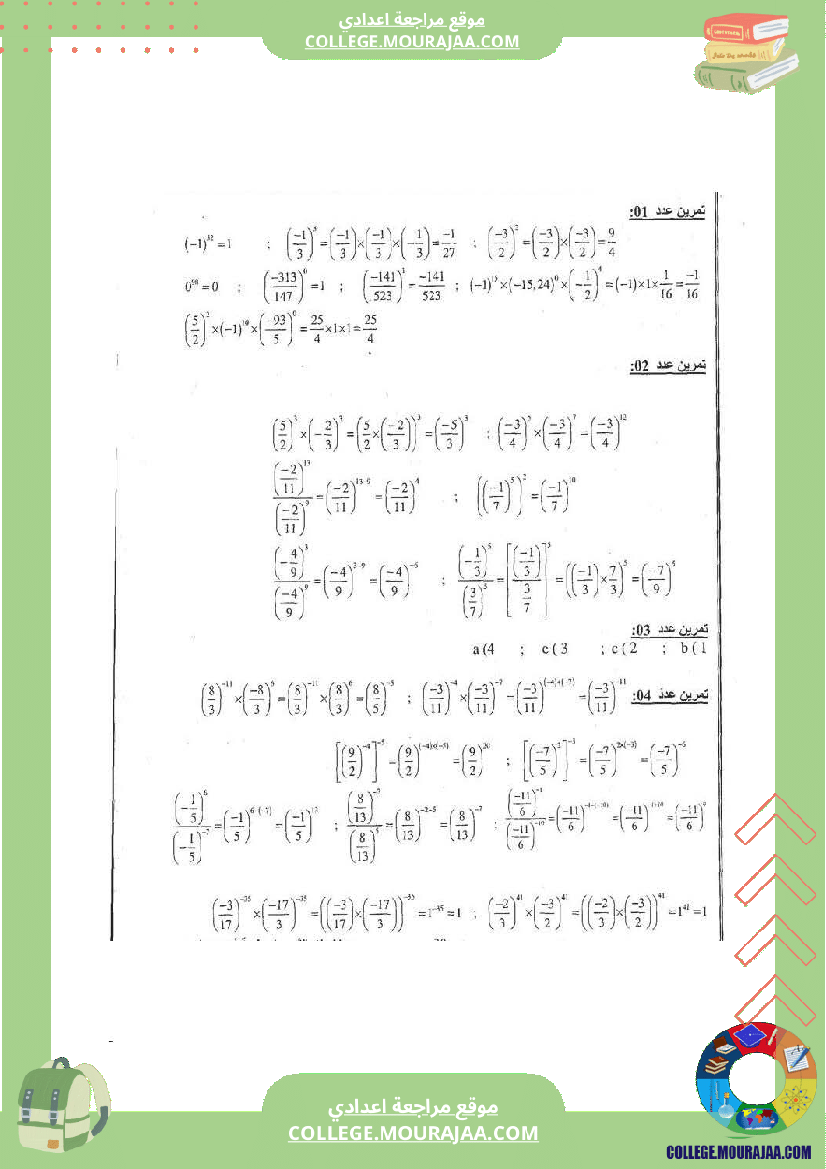 موقع مراجعة اعدادي
COLLEGE.MOURAJAA.COM
تمرين عدد 01:
(-1)^32 = 1 ; (-1/3)^3 = (-1/3)×(-1/3)×(-1/3) = -1/27 ; (-3/2)^2 = (-3/2)×(-3/2) = 9/4
0^98 = 0 ; (-313/147)^0 = 1 ; (-141/523)^1 = -141/523 ; (-1)^15×(-15,24)^0×(-1/2)^4 = (-1)×1×1/16 = -1/16
(5/2)^2×(-1)^10×(-93/5)^0 = 25/4×1×1 = 25/4
تمرين عدد 02:
(5/2)^3×(-2/3)^3 = (5/2×(-2/3))^3 = (-5/3)^3 ; (-3/4)^5×(-3/4)^7 = (-3/4)^12
(-2/11)^13/(-2/11)^9 = (-2/11)^13-9 = (-2/11)^4 ; ((-1/7)^5)^2 = (-1/7)^10
(-4/9)^3/(-4/9)^9 = (-4/9)^3-9 = (-4/9)^-6 ; (-1/3)^5/(3/7)^5 = [(-1/3)/(3/7)]^5 = ((-1/3)×7/3)^5 = (-7/9)^5
تمرين عدد 03:
a(4 ; c(3 ; c(2 ; b(1
تمرين عدد 04: (8/3)^-11×(-8/3)^6 = (8/3)^-11×(8/3)^6 = (8/5)^-5 ; (-3/11)^-4×(-3/11)^-7 = (-3/11)^(-4)+(-7) = (-3/11)^-11
[(9/2)^-4]^-5 = (9/2)^(-4)×(-5) = (9/2)^20 ; [(-7/5)^2]^-3 = (-7/5)^2×(-3) = (-7/5)^-6
(-1/5)^6/(-1/5)^-7 = (-1/5)^6-(-7) = (-1/5)^13 ; (8/13)^-2/(8/13)^5 = (8/13)^-2-5 = (8/13)^-7 ; (-11/6)^-1/(-11/6)^-10 = (-11/6)^-1-(-10) = (-11/6)^-1+10 = (-11/6)^9
(-3/17)^-35×(-17/3)^-35 = ((-3/17)×(-17/3))^-35 = 1^-35 = 1 ; (-2/3)^41×(-3/2)^41 = ((-2/3)×(-3/2))^41 = 1^41 = 1
موقع مراجعة اعدادي
COLLEGE.MOURAJAA.COM
COLLEGE.MOURAJAA.COM